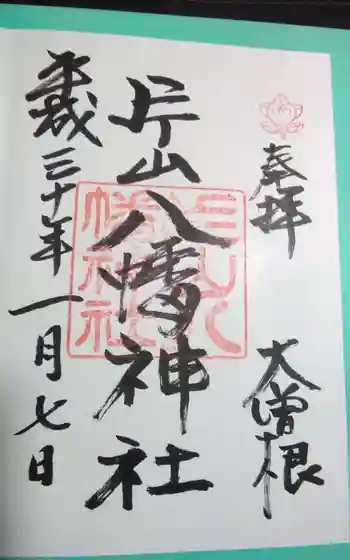 奉拝
大曽根
片山八幡神社
平成三十年一月七日
片山八幡神社